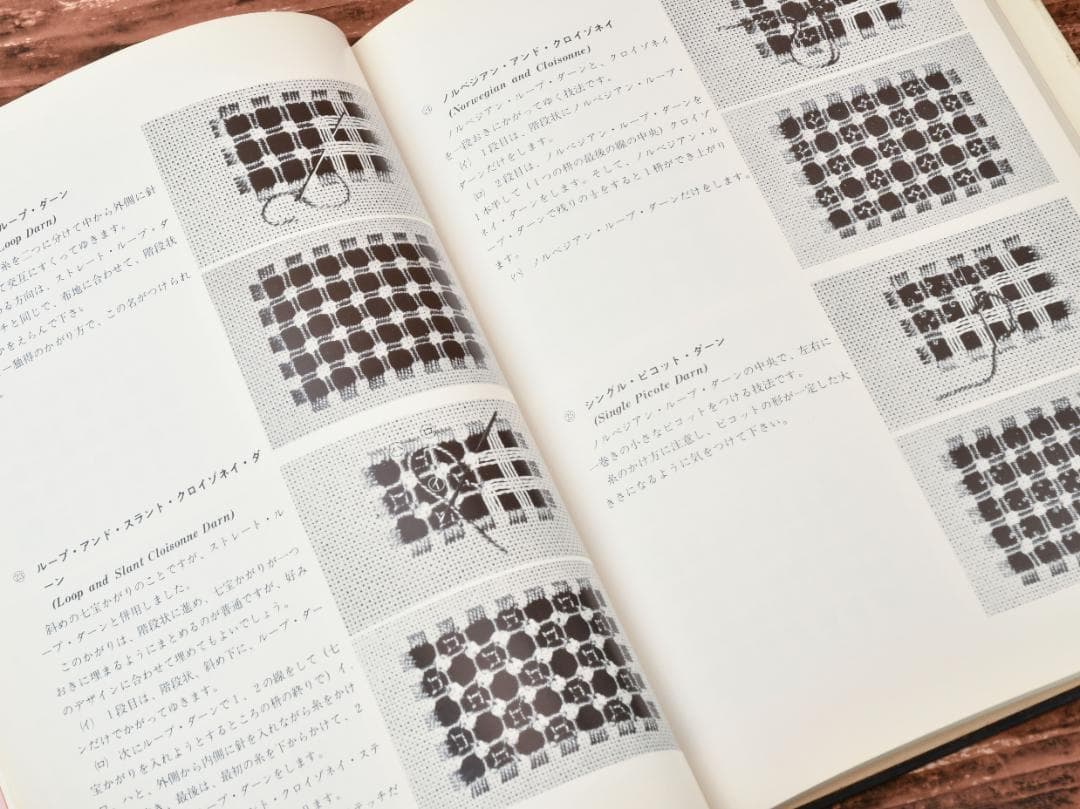 ループ・ダーン
Loop Darn)
糸を二つに分けて中から外側に針
て交互にすくってゆきます。
める方向は、ストレート・ループ・ダ
チと同じで、布地に合わせて、階段状
かをえらんで下さい。
一独得のかがり方で、この名がつけられ
㉓ ループ・アンド・スラント・クロイゾネイ・ダ
ーン
(Loop and Slant Cloisonne Darn)
斜めの七宝かがりのことですが、ストレート・ル
ープ・ダーンと併用しました。
このかがりは、階段状に進め、七宝かがりが一つ
おきに埋まるようにまとめるのが普通ですが、好み
のデザインに合わせて埋めてもよいでしょう。
(イ) 1段目は、階段状、斜め下に、ループ・ダー
ンだけでかがってゆきます。
(ロ) 次にループ・ダーンで1、2の線をして(七
宝かがりを入れようとするところの枡の終りで)イ、
ロ、ハと、外側から内側に針を入れながら糸をかけ
最後は、最初の糸を下からかけて、2
ループ・ダーンをします。
クロイゾネイ・ステ
㉔ ノルベジアン・アンド・クロイゾネイ
(Norwegian and Cloisonne)
ノルベジアン・ループ・ダーンと、クロイゾネイ
を一段おきにかがってゆく技法です。
(イ) 1段目は、階段状にノルベジアン・ループ・
ダーンだけをします。
(ロ) 2段目は、ノルベジアン・ループ・ダーンを
1本半して(1つの枡の最後の線の中央)クロイゾ
ネイ・ダーンをします。そして、ノルベジアン・ル
ープ・ダーンで残りの½をすると1枡ができ上がり
ます。
(ハ) ノルベジアン・ループ・ダーンだけをします。
㉕ シングル・ピコット・ダーン
(Single Picote Darn)
ノルベジアン・ループ・ダーンの中央で、左右に
一巻きの小さなピコットをつける技法です。
糸のかけ方に注意し、ピコットの形が一定した大
きさになるように気をつけて下さい。